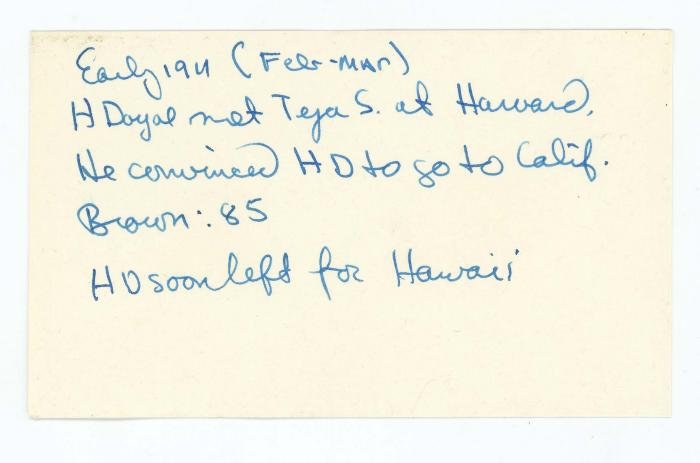 Early 1911 (Feb-Mar)
H Dayal met Teja S. at Harvard.
He convinced H D to go to Calif.
Brown: 85
H D soon left for Hawaii